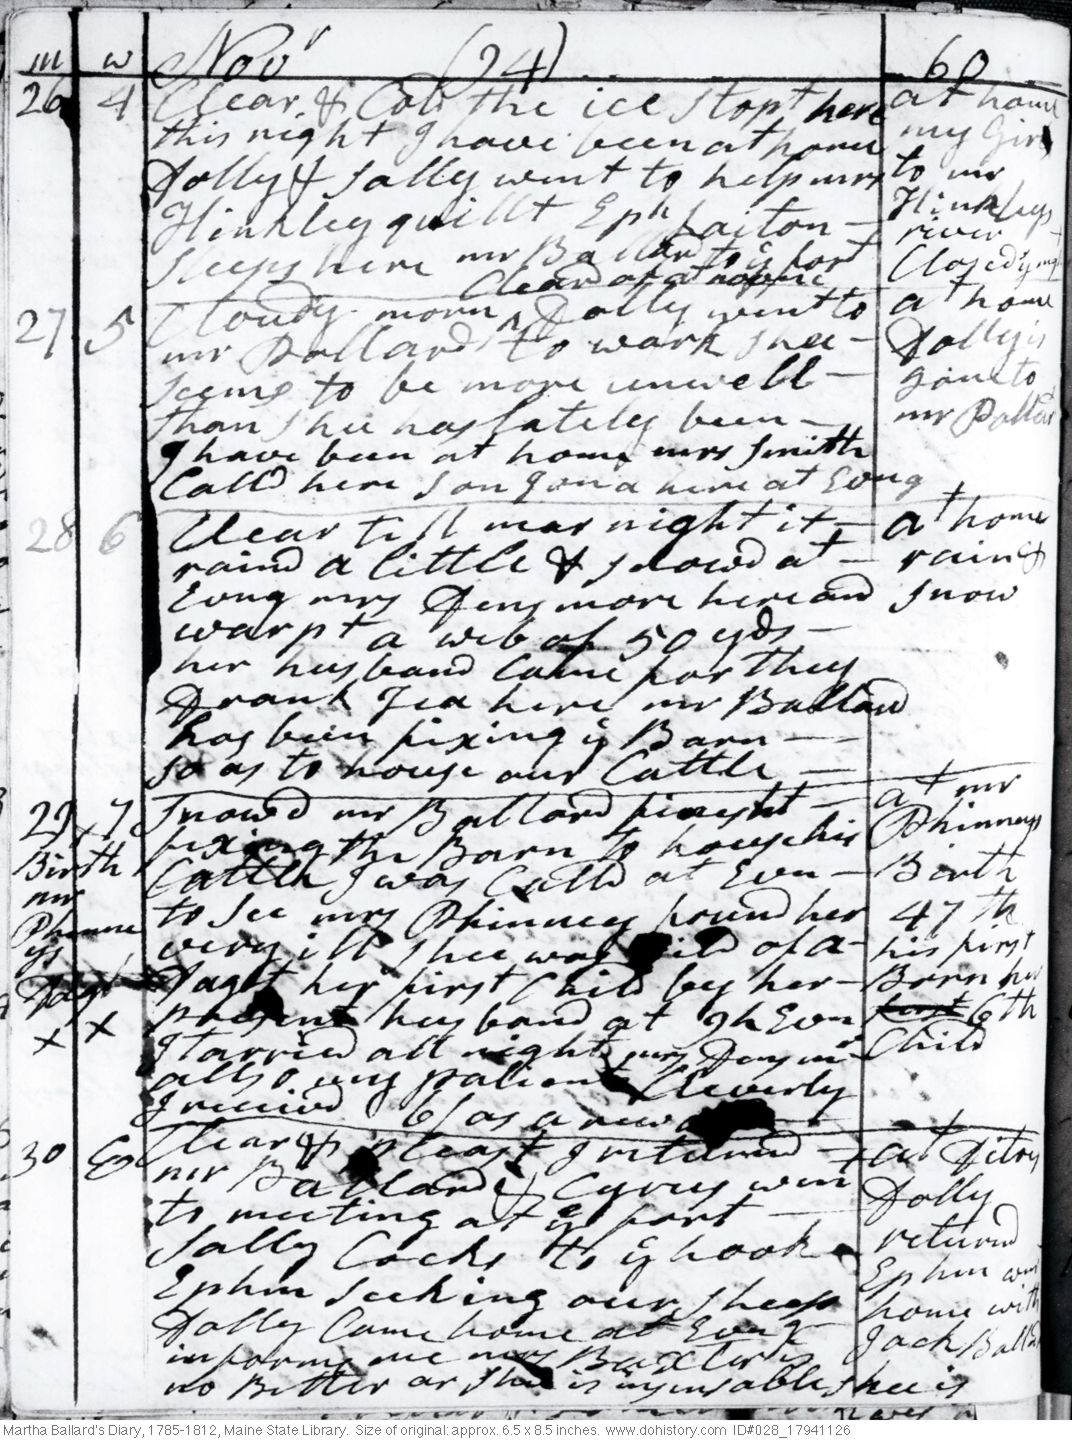 m w Novr (94) 60
26 4 Clear & Cold the ice stopt here
this night I have been at home
Dolly & Sally went to help mrs
Hinkley quillt Ephm
sleeps here mr Ballard to ye fort
at home
my Girls
to mr
Hinkleys
river
Closed
27 5 Cloudy morn Clear at
Dolly went to
mr Pollards to work shee
seems to be more unwell
than shee has lately been
I have been at home mrs Smith
Calld here son Jona here at Evng
at home
Dolly is
gone to
mr Pollard
28 6 Clear till near night it
raind a little & snowd at
Evng mrs Densmore here and
warpt a web of 50 yds
her husband Came for they
Drank Tea here mr Ballard
has been fixing ye Barn
so as to house our Cattle
at home
rain &
snow
29 7 Snowd mr Ballard finisht
fixing the Barn to house his
Cattle I was Calld at Evn
to see mrs Phinney found her
very ill shee was of a
Dagt her first Child by her
present husband at 9h Evn
I tarried all night mrs
allso my patient Cleverly
I receivd 6/ as a
Birth
mr
Phinneys
Dagt
x x
at mr
Phinneys
Birth
47th
his first
Born her
first 6th
Child
30 E Clear & pleast I returnd
mr Ballard & Cyrus went
to meeting at ye fort
Sally Cocks to ye hook
Ephm seeking our sheep
Dolly Came home at Evng
informs me mrs Baxter is
no Better or shee is insensable shee is
at Ditoes
Dolly
returnd
Ephm went
home with
Jack Ballard
Martha Ballard's Diary, 1785-1812, Maine State Library. Size of original: approx. 6.5 x 8.5 inches. www.dohistory.com ID#028_17941126